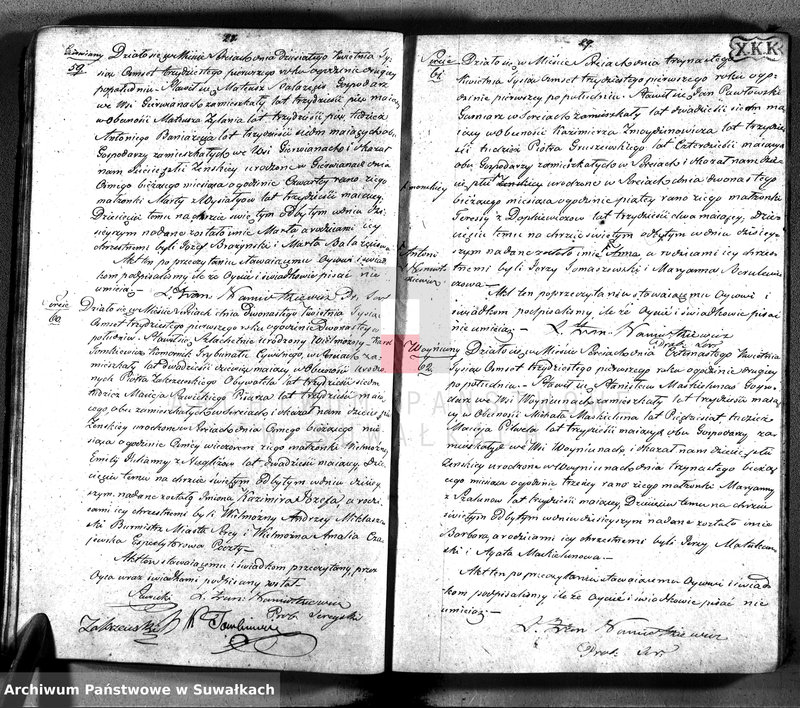 Gierwiany
59
Działo się w Mieście Serejach dnia dziesiątego Kwietnia Ty-
siąc Ośmset trzydziestego pierwszego roku o godzinie drugiej
popołudniu. Stawił się Mateusz Balazegis Gospodarz
we Wsi Gierwianach zamieszkały lat trzydzieści maiący
w Obecności Mateusza Zylania lat trzydzieści tudzież
Antoniego Baniazega lat trzydzieści siedm maiących obu
Gospodarzy zamieszkałych we Wsi Gierwianach i okazał
nam dziecię płci Żeńskiej urodzone w Gierwianach dnia
Ósmego bieżącego miesiąca o godzinie czwartej rano z iego
małżonki Marty z lat trzydzieści maiącey.
Dziecięciu temu na chrzcie świętym odbytym w dniu dzi-
sieyszym nadano zostało imie Marta a rodzicami iey
chrzestnemi byli Józef Brazynski i Marta Balazisowa
Akt ten po przeczytaniu stawaiącemu Oycowi i świad-
kom podpisaliśmy, ile że Oyciec i świadkowie pisać nie
umieią.—
X. Fran Namiotkiewicz Pr. Ser
Sereie
60.
Działo się w Mieście Sereiach dnia dwunastego Kwietnia Tysiąc
Ośmset trzydziestego pierwszego roku o godzinie dwunastey w
południe. Stawił się Szlachetnie urodzony Wielmożny Karol
Tomkiewicz Komornik Trybunału Cywilnego, w Sereiach za-
mieszkały lat dwadzieścia dziewięć maiący w Obecności Urodzo-
nych Piotra Zakrzewskiego Obywatela lat trzydzieści siedm
tudzież Macieja Sawickiego Pisarza lat trzydzieści maią-
cego, obu zamieszkałych w Sereiach i okazał nam dziecię płci
Żeńskiey urodzone w Sereiach dnia Ósmego bieżącego mie-
siąca o godzinie Ósmey wieczorem z iego małżonki Wielmożney
Emilij Julianny z lat dwadzieścia maiącey. Dzie-
cięciu temu na chrzcie świętym Odbytym w dniu dzisiey-
szym nadane zostały Imiona Kazimira Józefa a rodzi-
cami iey chrzestnemi byli Wielmożny Andrzey Mikłaszew-
ski Burmistrz Miasta Serey i Wielmożna Amalia Cza-
jewska Expedytorowa Poczty—
Akt ten stawaiącemu i świadkom przeczytany, przez
Oyca wraz świadkami podpisany został.
Sawicki X. Fran Namiotkiewicz
Prob Sereyski
Zakrzewski K Tomkiewicz
29.
X.K.K
Sereie
61
Działo się w Mieście Sereiach dnia trzynastego
Kwietnia Tysiąc Ośmset trzydziestego pierwszego roku o go-
dzinie pierwszey po południu. Stawił się Jan Pawłowski
Garncarz w Sereiach zamieszkały lat dwadzieścia siedm ma-
iący w obecności Kazimierza Zmaydzinowicza lat trzydzie-
ści tudzież Piotra Gruszewskiego lat Czterdzieści maiących
obu Gospodarzy zamieszkałych w Sereiach i okazał nam dzie-
cię płci Żenskiey urodzone w Sereiach dnia dwunastego
bieżącego miesiąca o godzinie piątey rano z iego małżonki
Teressy z Dopkiewiczow lat trzydzieści dwa maiącey. Dzie-
cięciu temu na chrzcie świętym odbytym w dniu dzisiey-
szym nadane zostało imie Anna a rodzicami iey chrze-
stnemi byli Jerzy Tomaszewski i Maryanna
Akt ten po przeczytaniu stawaiącemu Oycowi i
świadkom podpisaliśmy, ile że Oyciec i świadkowie pisać
nie umieią.—
X. Fran. Namiotkiewicz
Prob. Ser
Antoni
Woyniuny
62.
Działo się w Mieście Sereiach dnia Czternastego Kwietnia
Tysiąc Ośmset trzydziestego pierwszego roku o godzinie drugiey
po południu. Stawił się Stanisław Maskielunas Gospo-
darz we Wsi Woyniunach zamieszkały lat trzydzieści maią-
cy w Obecności Michała Maskieluna lat Piędziesiąt tudzież
Macieja Petucla lat trzydzieści maiących obu Gospodarzy za-
mieszkałych we Wsi Woyniunach, i okazał nam dziecię płci
Żenskiey urodzone w Woyniunach dnia trzynastego bieżą-
cego miesiąca o godzinie trzeciey rano z iego małżonki Maryanny
z Szalunow lat trzydzieści maiącey. Dziecięciu temu na chrzcie
świętym Odbytym w dniu dzisieyszym nadane zostało imie
Barbara, a rodzicami iey chrzestnemi byli Jerzy
i Agata Maskielunowa—
Akt ten po przeczytaniu stawaiącemu Oycowi i świad-
kom podpisaliśmy, ile że Oyciec i świadkowie pisać nie
umieią.—
X. Fran Namiotkiewicz
Prob. Ser
ARCHIWUM PAŃSTWOWE
W SUWAŁKACH
Archiwum Państwowe w Suwałkach